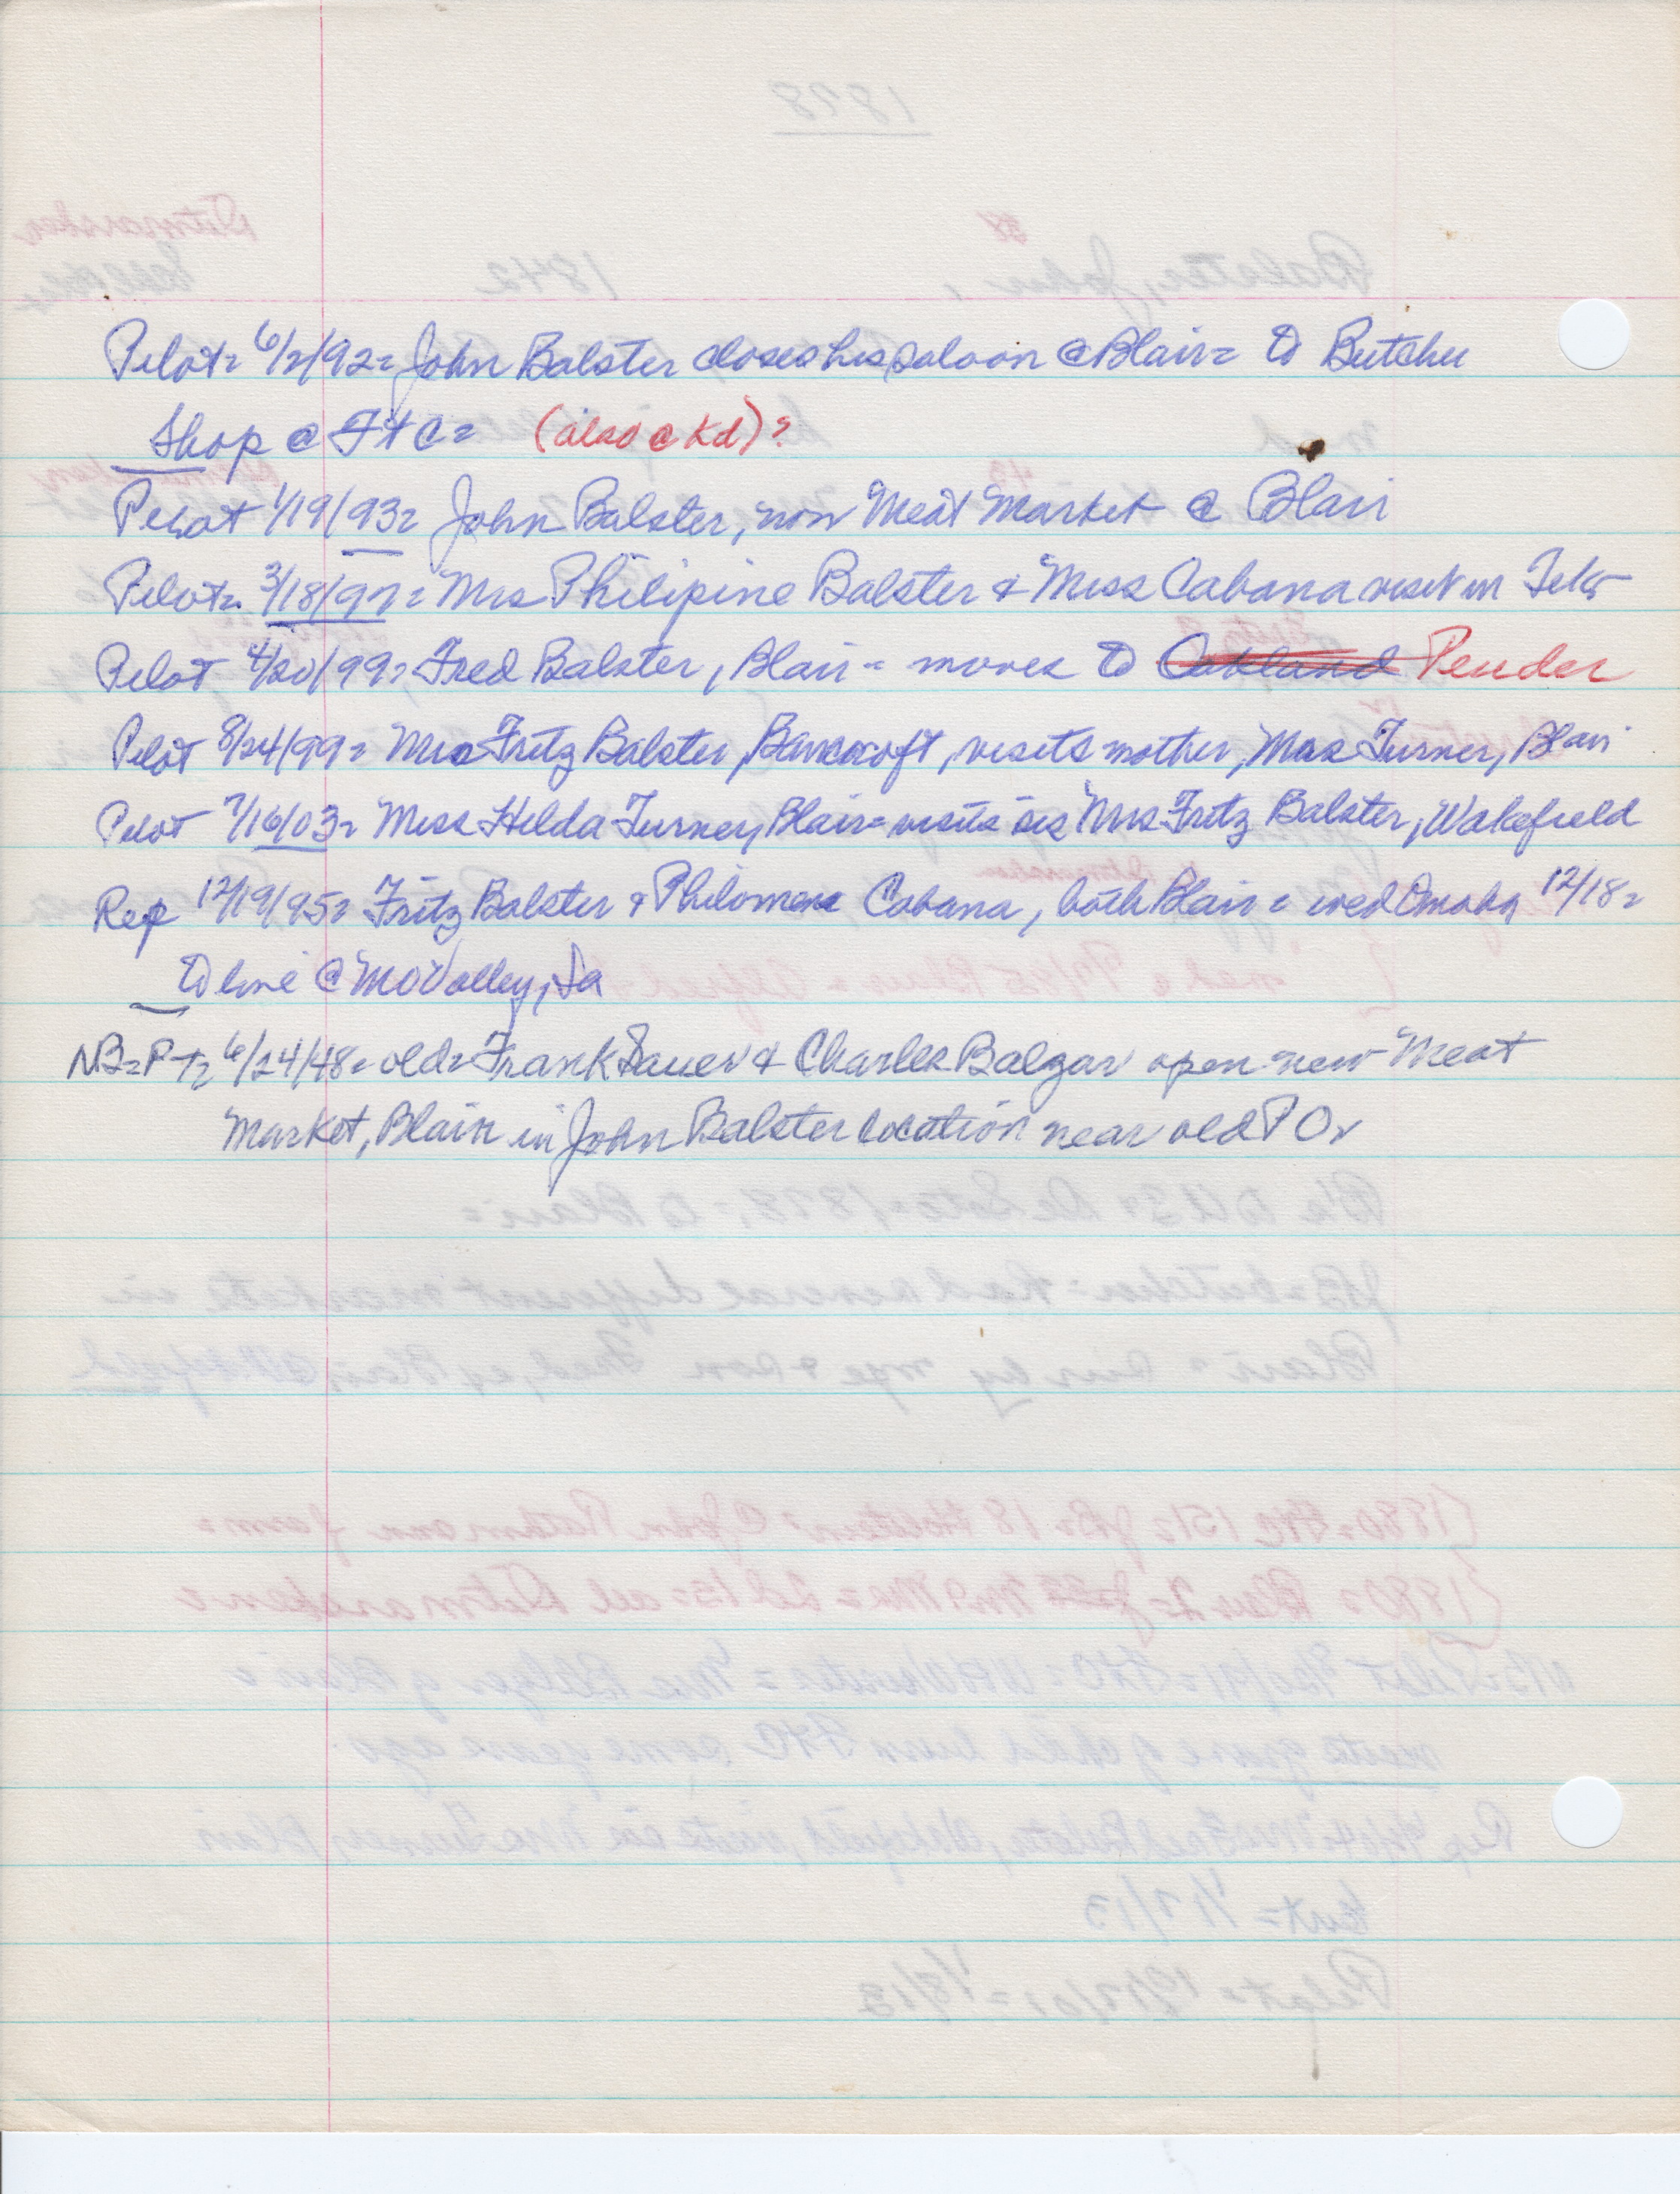 Pilot= 6/2/92= John Balster closes his saloon @ Blair= to Butcher
Shop @ Ft C= (also @ Kd)?
Pilot 1/19/93= John Balster, now Meat Market @ Blair
Pilot= 3/18/97= Mrs Philipine Balster & Miss Cabana visit in Tek=
Pilot 4/20/99= Fred Balster, Blair= moves to Oakland Pender
Pilot 8/24/99= Mrs Fritz Balster, Bancroft, visits mother, Mrs Turner, Blair
Pilot 7/16/03= Miss Hilda Turney, Blair= visits sis Mrs Fritz Balster, Wakefield
Rep 12/19/95= Fritz Balster & Philomena Cabana, both Blair= wed Omaha 12/18=
to live @ MoValley, Ia
NB=P-T= 6/24/48= old= Frank Sauer & Charles Balgar open new Meat
Market, Blair in John Balster location near old P O=